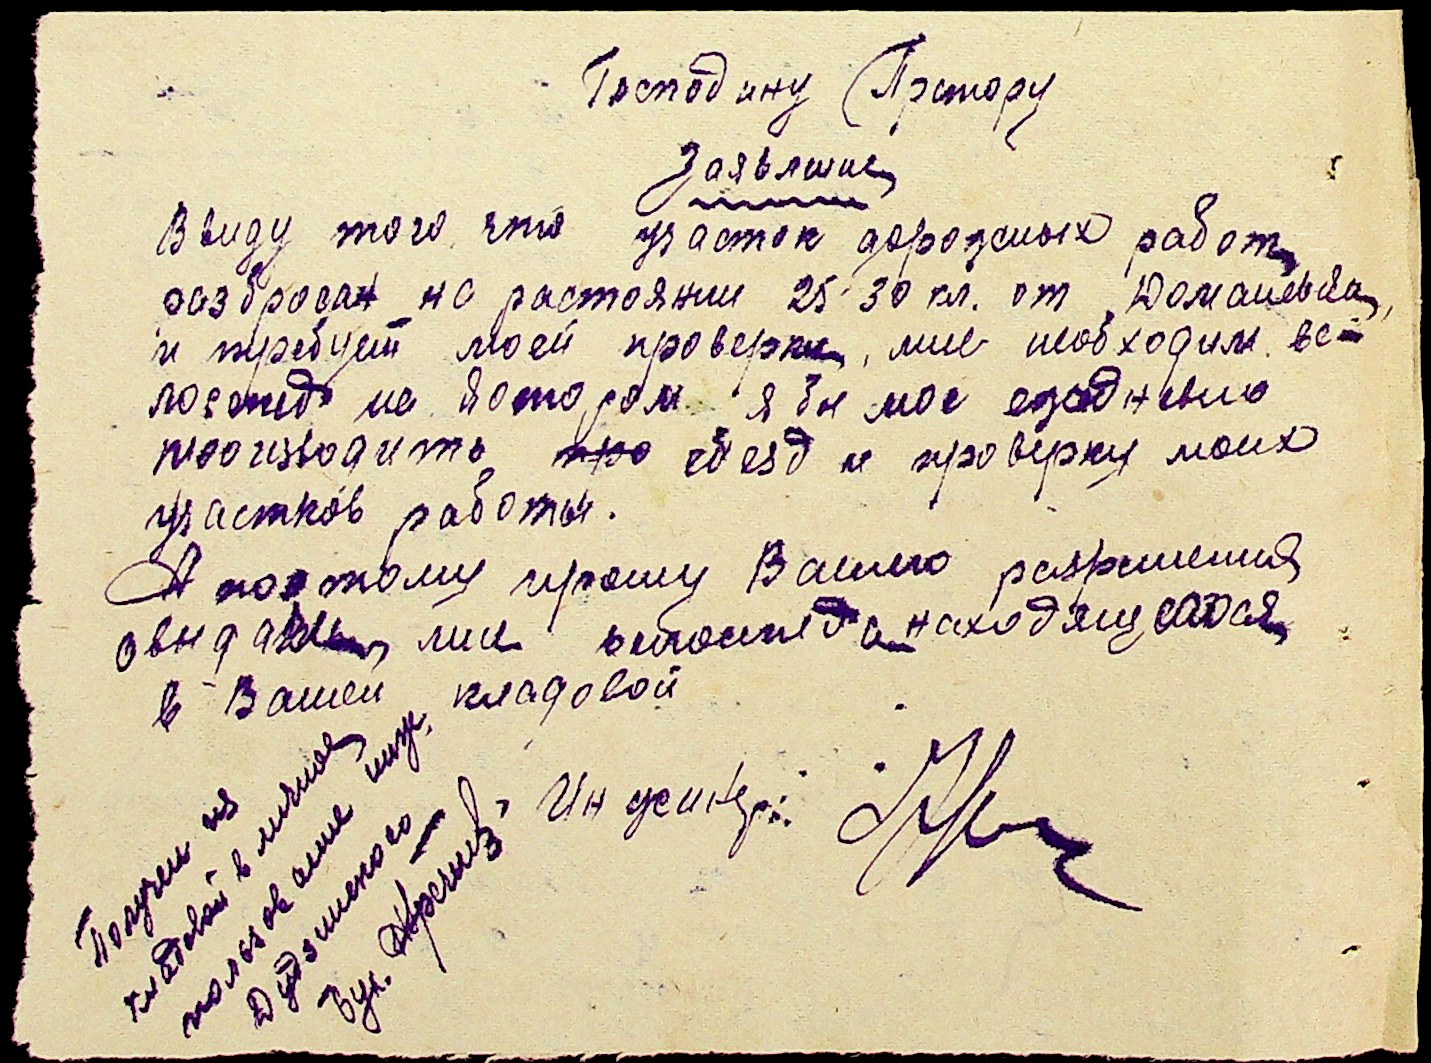 Господину Претору
Заявление
Ввиду того, что участок дорожных работ
разбросан на растоянии 25-30 кл. от Доманевка,
и требует моей проверки, мне необходим ве-
лосипед на котором я бы мог ежедневно
производить объезд и проверку моих
участков работы.
А поэтому прошу Вашего разрешения
о выдачи мне велосипеда находящегося
в Вашей кладовой
Инженер:
Получен из
кладовой в личное
пользование инж.
Дудзинского
Бух.